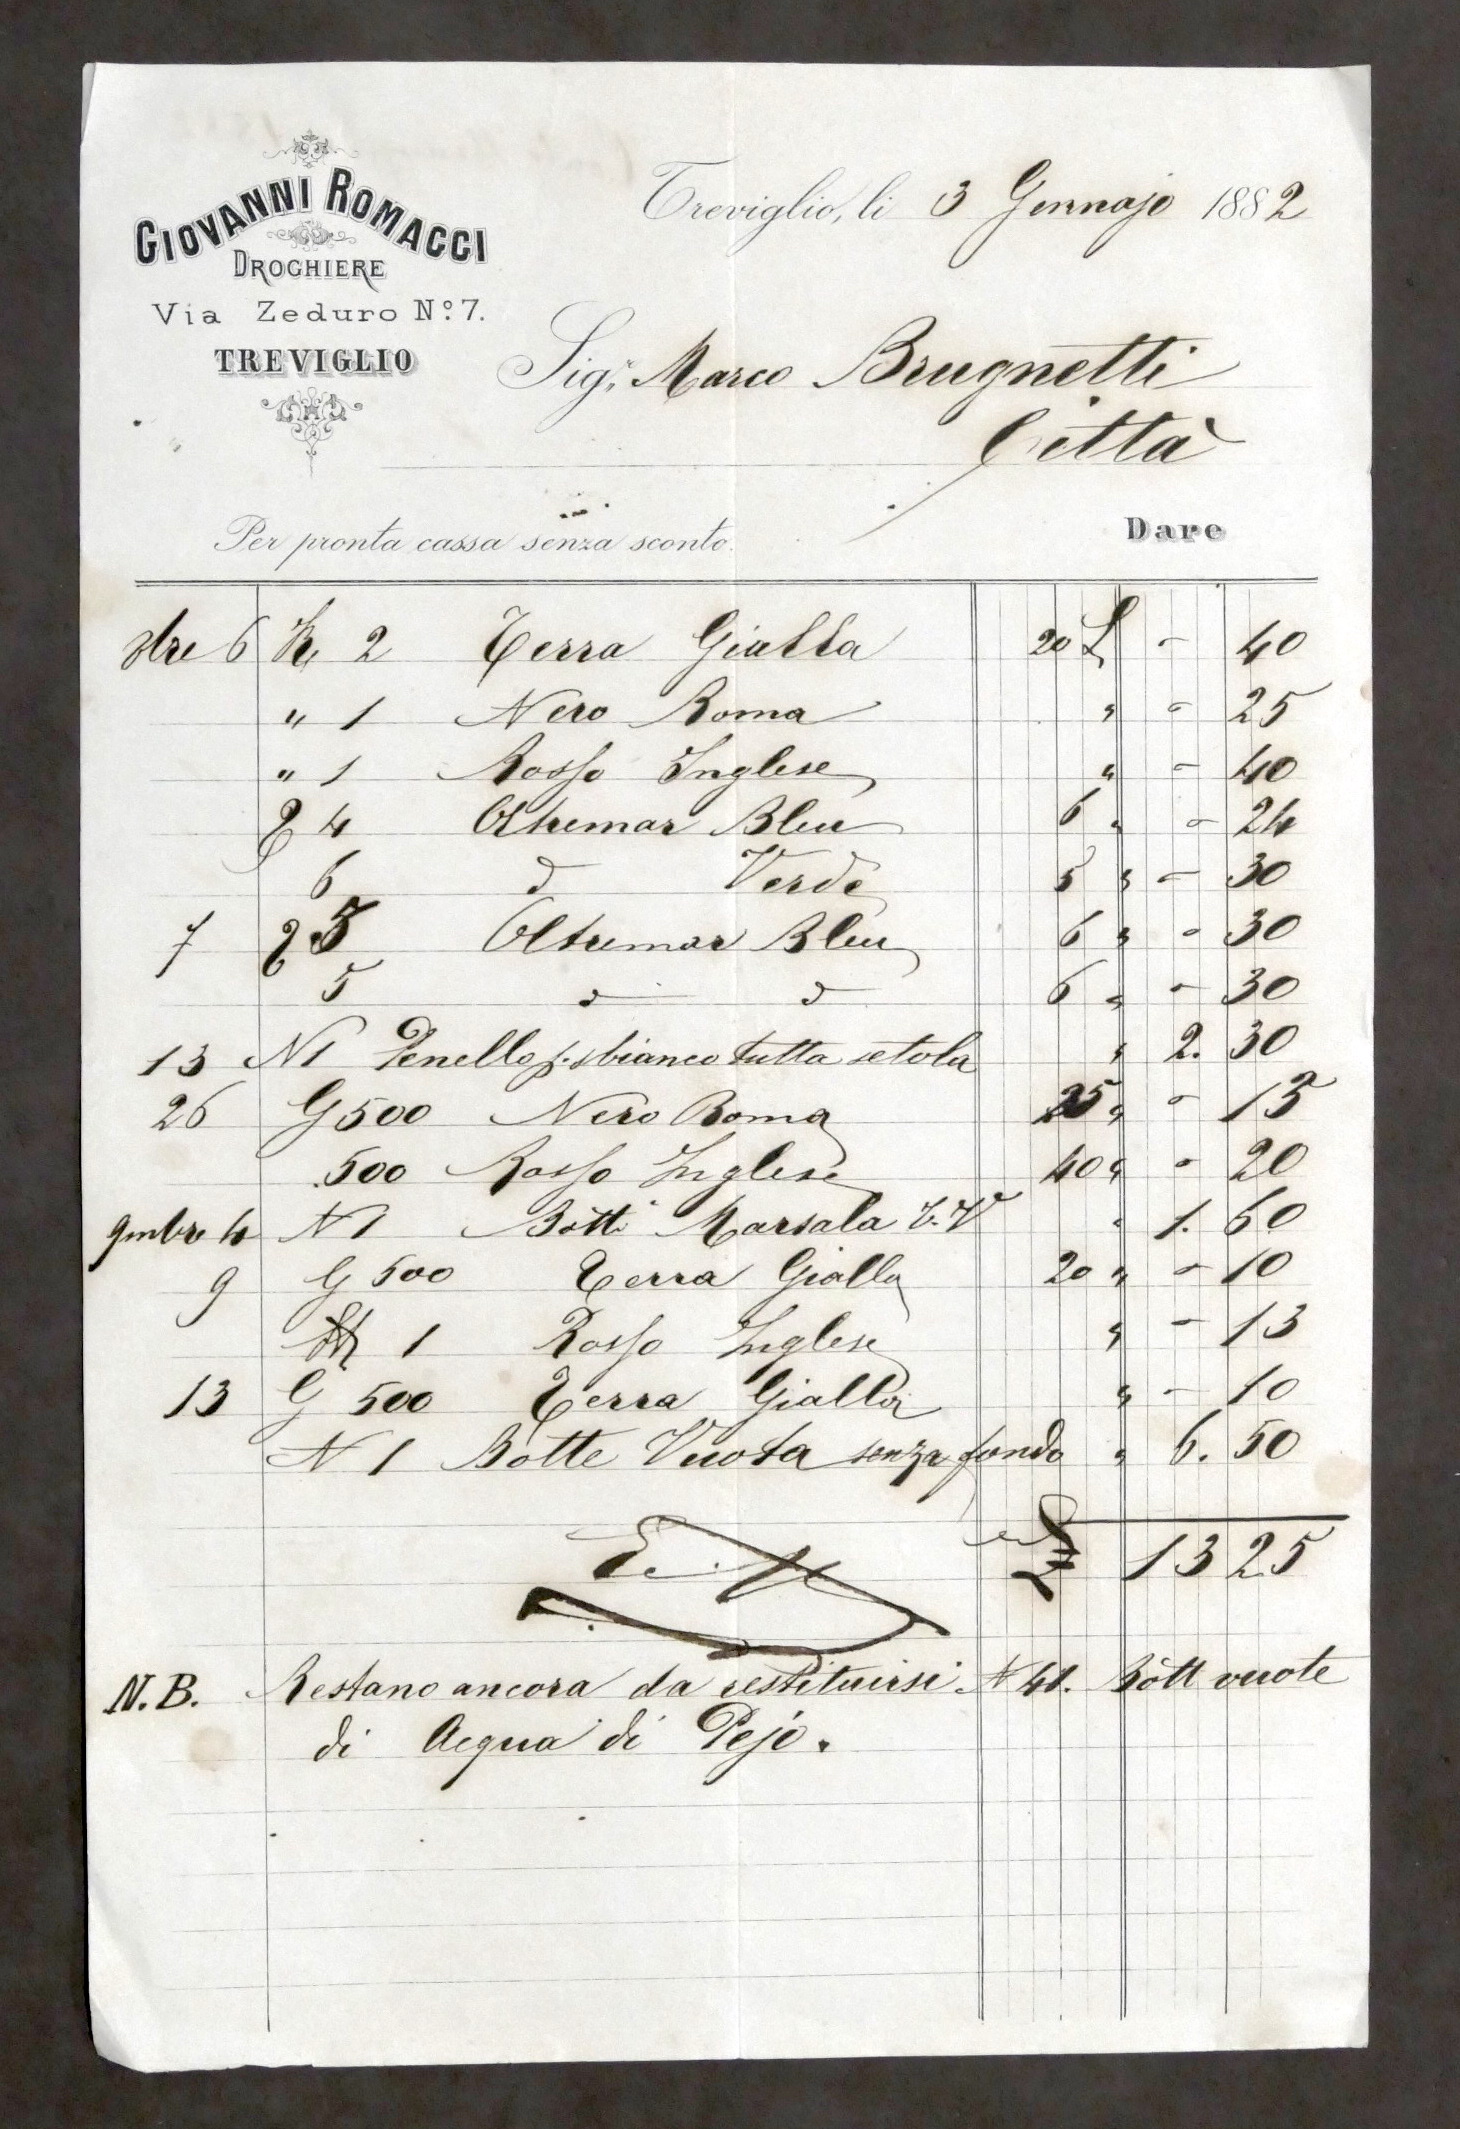 GIOVANNI ROMACCI
DROGHIERE
Via Zeduro Nº 7.
TREVIGLIO
Treviglio, li 3 Gennajo 1882
Sigr. Marco Brugnetti
Città
Per pronta cassa senza sconto.
Dare
6 K 2 Terra Gialla 20 L - 40
" 1 Nero Roma " - 25
" 1 Rosso Inglese " - 40
4 Oltremar Bleu 6 " - 24
6 d Verde 5 " - 30
7 5 Oltremar Bleu 6 " - 30
5 d d 6 " - 30
13 N 1 Penello p. sbianco tutta setola " 2. 30
26 G 500 Nero Roma 25 " - 13
500 Rosso Inglese 40 " - 20
9mbre 4 N 1 Bott Marsala V. V " 1. 60
9 G 500 Terra Gialla 20 " - 10
1 Rosso Inglese " - 13
13 G 500 Terra Gialla " - 10
N 1 Botte Vuota senza fondo " 6. 50
13 25
N.B. Restano ancora da restituirsi N 41. Bott vuote
di Acqua di Pejo.